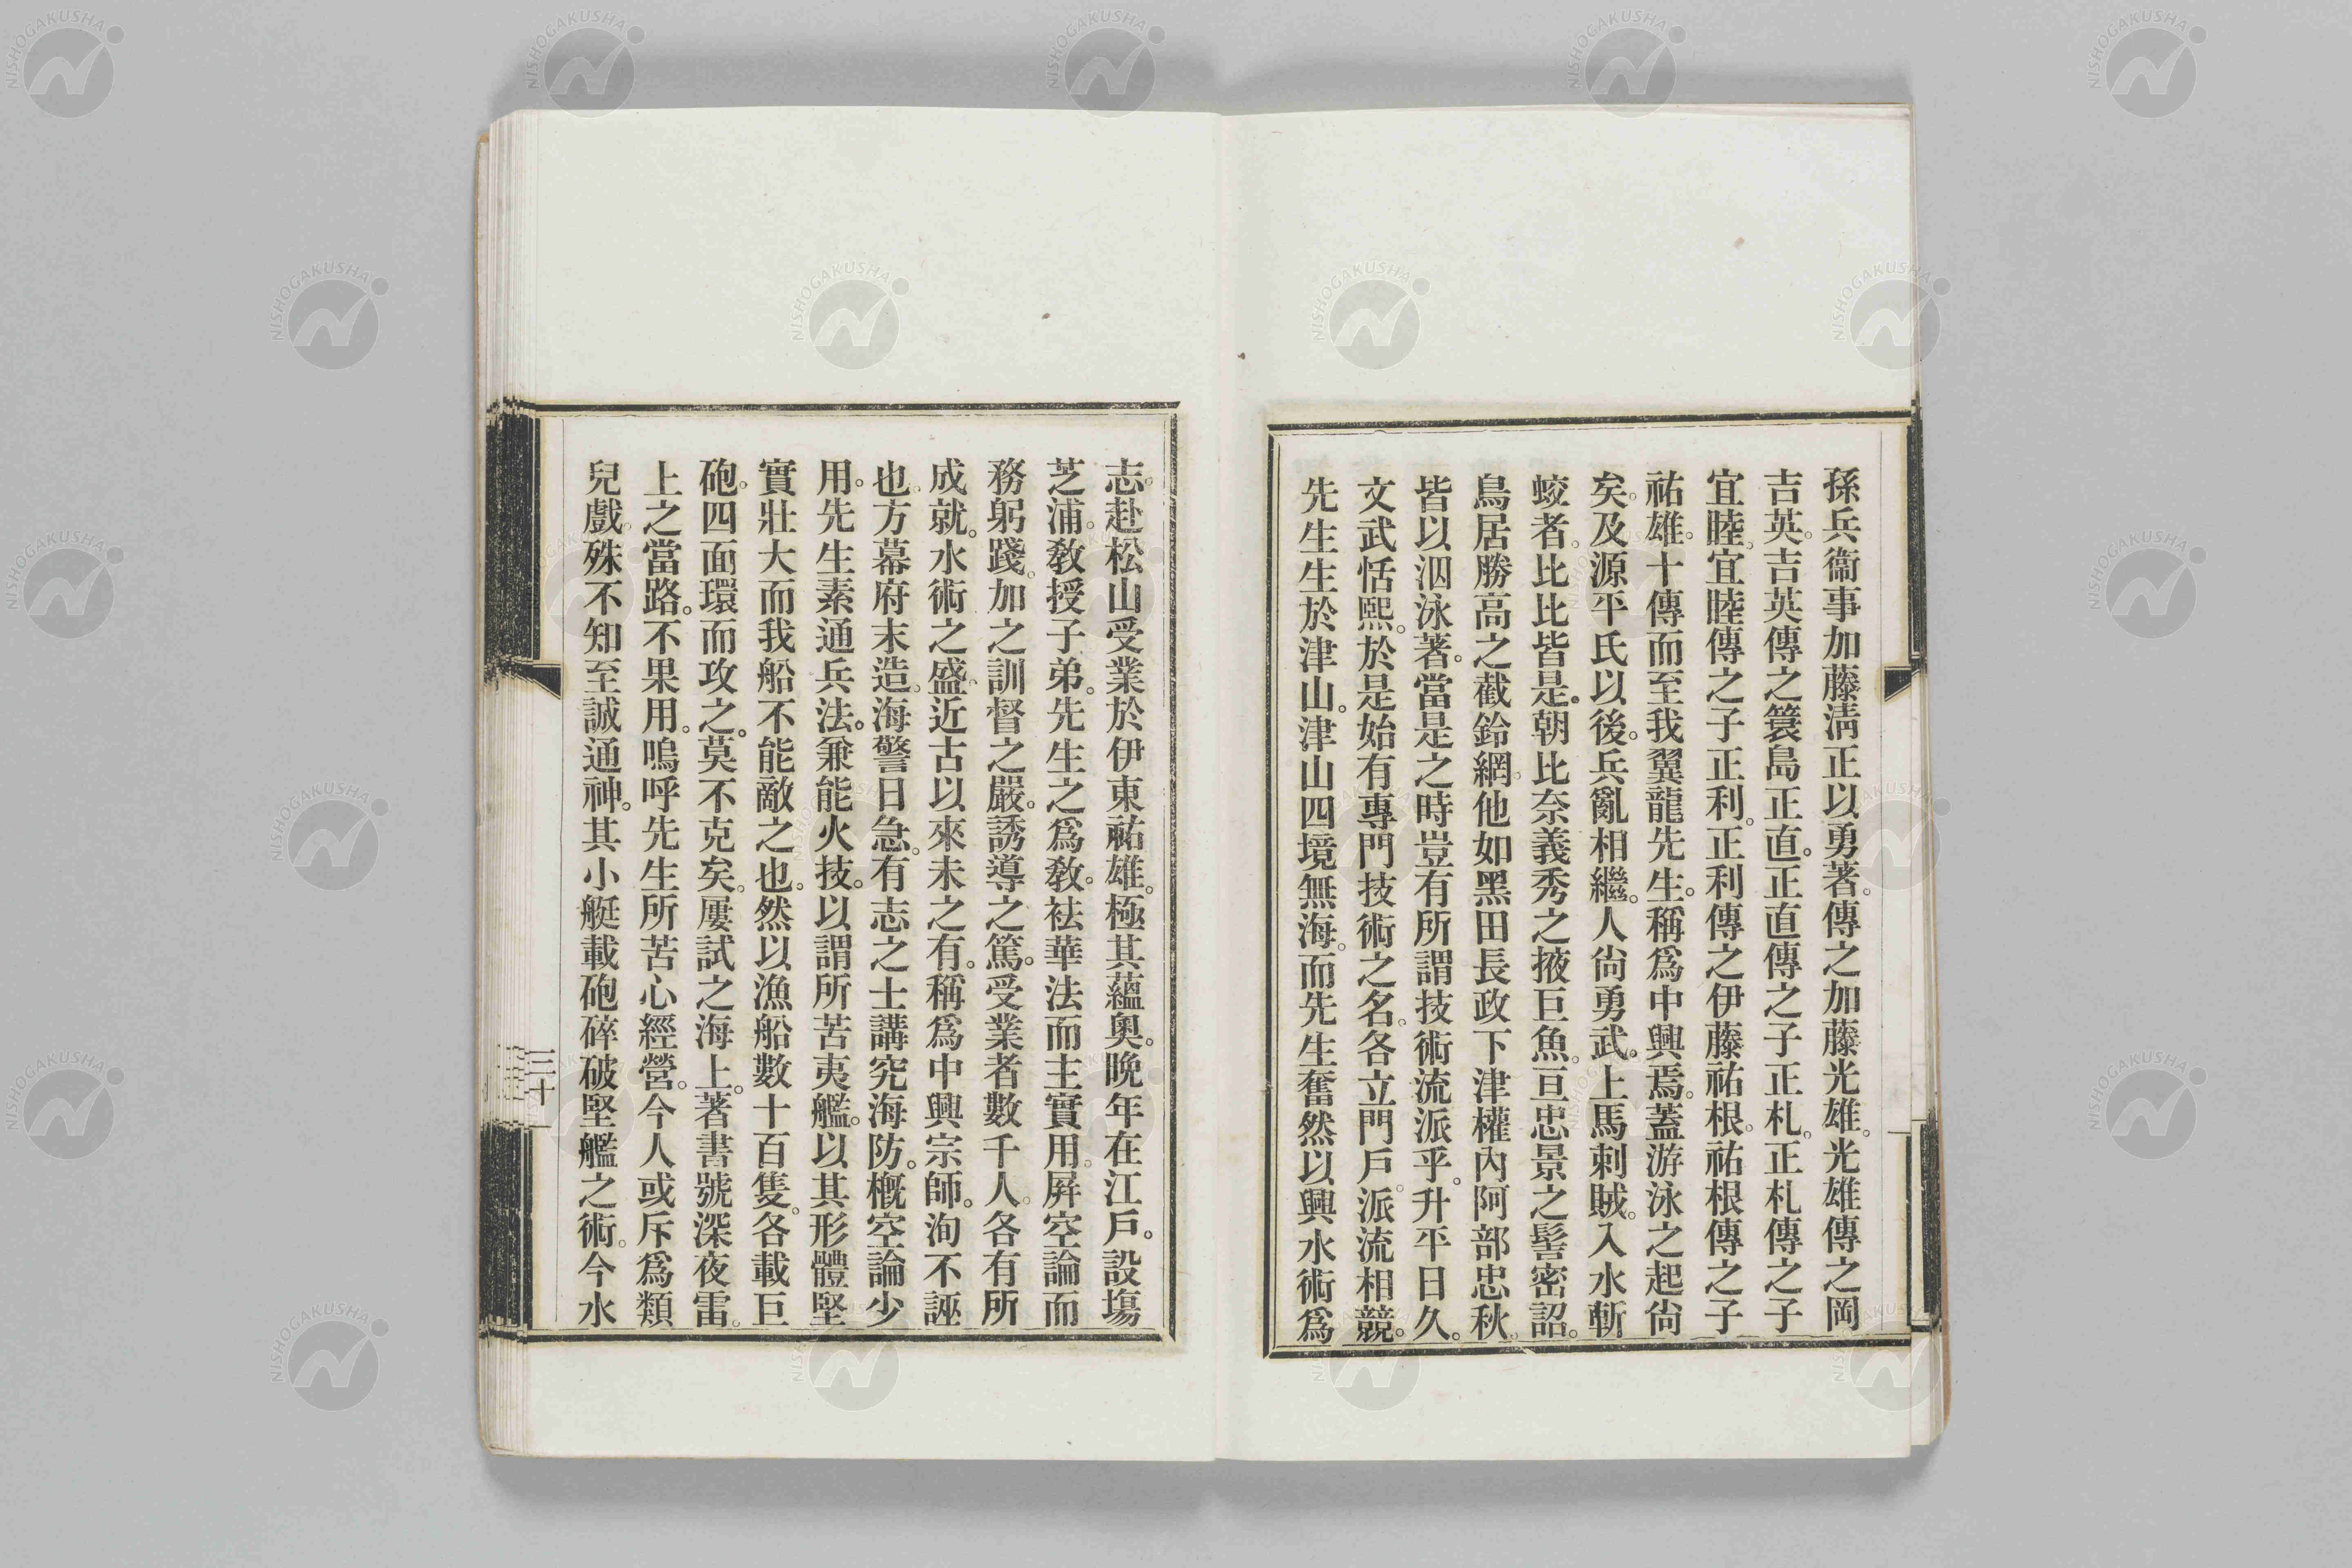 孫兵衞事加藤淸正以勇著。傳之加藤光雄。光雄傳之岡
吉英。吉英傳之簑島正直。正直傳之子正札。正札傳之子
宜睦。宜睦傳之子正利。正利傳之伊藤祐根。祐根傳之子
祐雄。十傳而至我翼龍先生。稱爲中興焉。蓋游泳之起尙
矣。及源平氏以後。兵亂相繼。人尙勇武。上馬刺賊。入水斬
蛟者。比比皆是。朝比奈義秀之掖巨魚。亘忠景之髻密詔。
鳥居勝高之截鈴網。他如黑田長政下津權內阿部忠秋。
皆以泅泳著。當是之時豈有所謂技術流派乎。升平日久。
文武恬熙。於是始有專門技術之名。各立門戶。派流相競。
先生生於津山。津山四境無海。而先生奮然以興水術爲
志。赴松山受業於伊東祐雄。極其蘊奧。晚年在江戶。設塲
芝浦。敎授子弟。先生之爲敎。袪華法而主實用。屛空論而
務躬踐。加之訓督之嚴。誘導之篤。受業者數千人。各有所
成就。水術之盛。近古以來未之有。稱爲中興宗師。洵不誣
也。方幕府末造。海警日急。有志之士講究海防。槪空論少
用。先生素通兵法。兼能火技。以謂所苦夷艦。以其形體堅
實壯大而我船不能敵之也。然以漁船數十百隻。各載巨
砲。四面環而攻之。莫不克矣。屢試之海上。著書號深夜雷。
上之當路。不果用。嗚呼先生所苦心經營。今人或斥爲類
兒戲。殊不知至誠通神。其小艇載砲碎破堅艦之術。今水
三十一
NISHOGAKUSHA